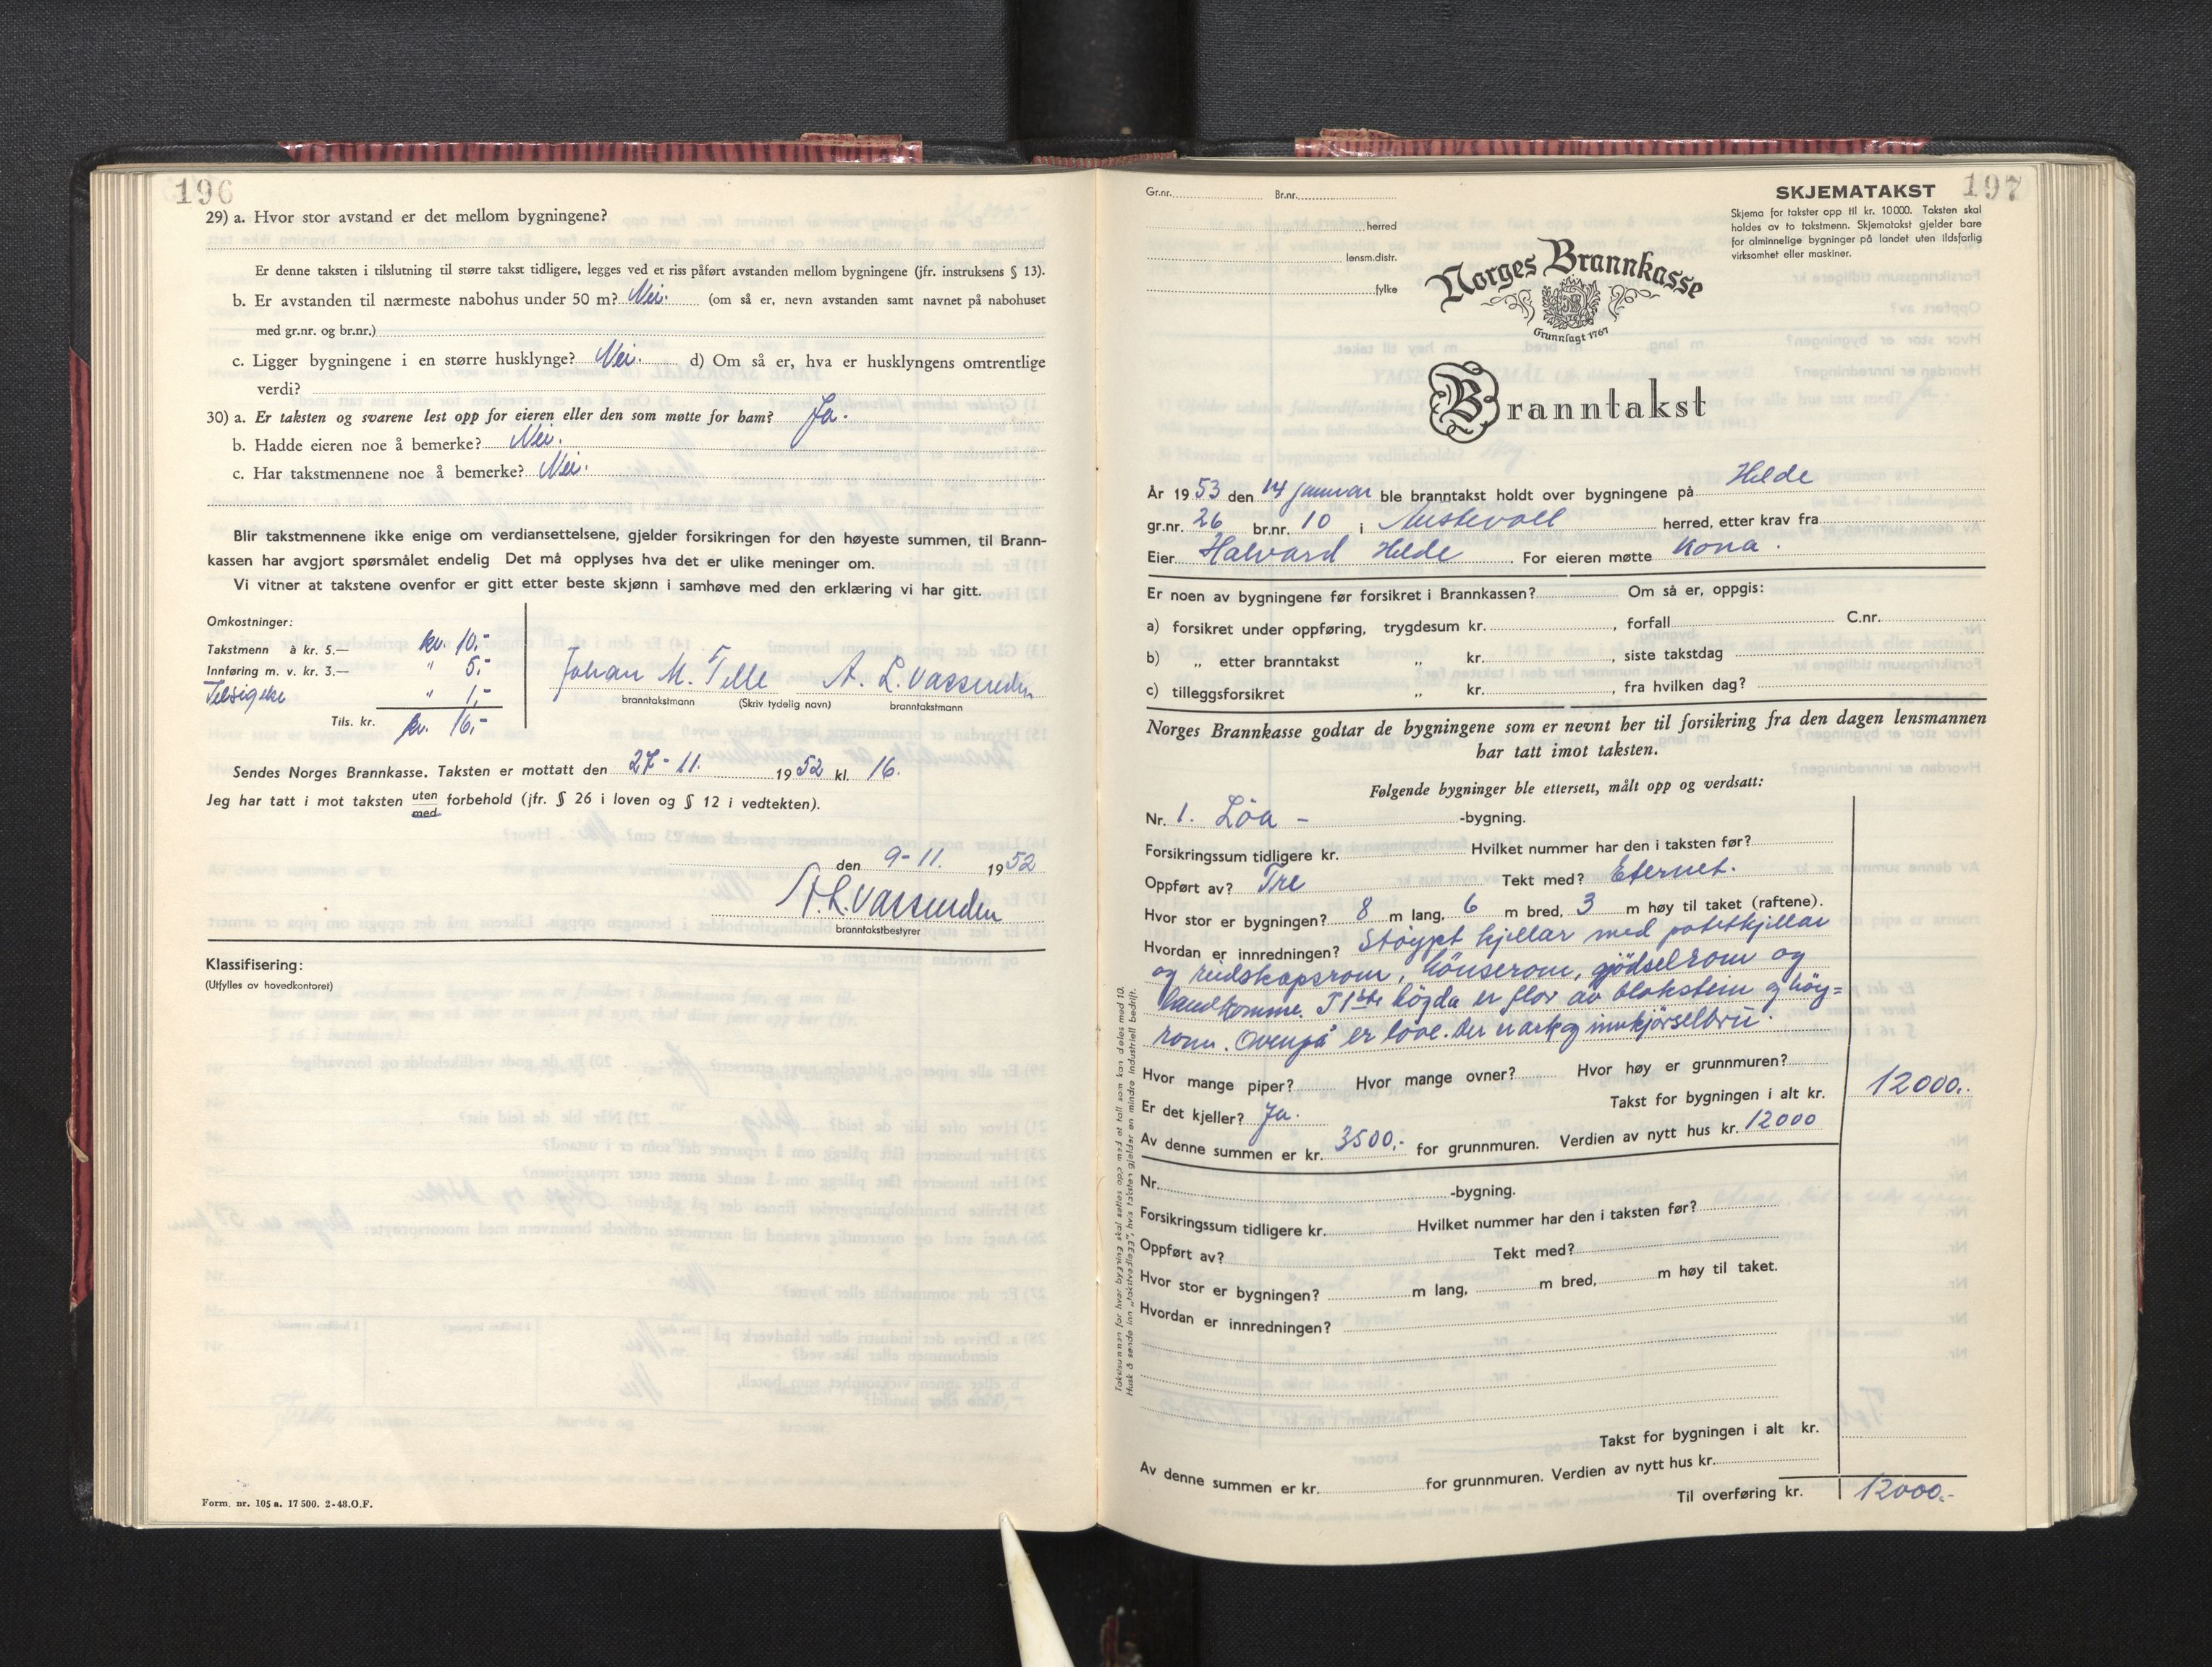 196
29) a. Hvor stor avstand er det mellom bygningene?
Er denne taksten i tilslutning til større takst tidligere, legges ved et riss påført avstanden mellom bygningene (jfr. instruksens § 13).
b. Er avstanden til nærmeste nabohus under 50 m? Nei. (om så er, nevn avstanden samt navnet på nabohuset
med gr.nr. og br.nr.)
c. Ligger bygningene i en større husklynge? Nei. d) Om så er, hva er husklyngens omtrentlige
verdi?
30) a. Er taksten og svarene lest opp for eieren eller den som møtte for ham? Ja.
b. Hadde eieren noe å bemerke? Nei.
c. Har takstmennene noe å bemerke? Nei.
Blir takstmennene ikke enige om verdiansettelsene, gjelder forsikringen for den høyeste summen, til Brann-
kassen har avgjort spørsmålet endelig Det må opplyses hva det er ulike meninger om.
Vi vitner at takstene ovenfor er gitt etter beste skjønn i samhøve med den erklæring vi har gitt.
Omkostninger:
Takstmenn à kr. 5.— kr. 10,-
Innføring m. v. kr. 3.— " 5,-
" 1,-
Tils. kr. kr. 16,-
Johan M. Telle A. L. Vassenden
branntakstmann (Skriv tydelig navn) branntakstmann
Sendes Norges Brannkasse. Taksten er mottatt den 27-11. 1952 kl. 16.
Jeg har tatt i mot taksten uten
med forbehold (jfr. § 26 i loven og § 12 i vedtekten).
den 9-11. 1952
A.L.Vassenden
branntakstbestyrer
Klassifisering:
(Utfylles av hovedkontoret)
Form. nr. 105 a. 17 500. 2-48. O.F.
Gr.nr. Br.nr.
SKJEMATAKST 197
Skjema for takster opp til kr. 10000. Taksten skal
holdes av to takstmenn. Skjematakst gjelder bare
for alminnelige bygninger på landet uten ildsfarlig
virksomhet eller maskiner.
herred
lensm.distr.
fylke
Norges Brannkasse
Grunnlagt 1767
Branntakst
År 1953 den 14 januar ble branntakst holdt over bygningene på Hilde
gr.nr. 26 br.nr. 10 i Austevoll herred, etter krav fra
Eier Halvard Hilde. For eieren møtte Kona.
Er noen av bygningene før forsikret i Brannkassen? Om så er, oppgis:
a) forsikret under oppføring, trygdesum kr. , forfall C.nr.
b) „ etter branntakst „ kr. , siste takstdag
c) tilleggsforsikret „ kr. , fra hvilken dag?
Norges Brannkasse godtar de bygningene som er nevnt her til forsikring fra den dagen lensmannen
har tatt imot taksten.
Følgende bygninger ble ettersett, målt opp og verdsatt:
Nr. 1. Löa - -bygning.
Forsikringssum tidligere kr. Hvilket nummer har den i taksten før?
Oppført av? Tre Tekt med? Eternet.
Hvor stor er bygningen? 8 m lang, 6 m bred, 3 m høy til taket (raftene).
Hvordan er innredningen? Støypt kjellar med potetkjellar
og reidskapsrom, hönserom, gjödselrom og
landkomme. I 1ste högda er flor av blokstein og höy=
rom. Ovenpå er löve. der er ark og innkjörselbru.
Hvor mange piper? Hvor mange ovner? Hvor høy er grunnmuren?
Er det kjeller? Ja. Takst for bygningen i alt kr. 12000.-
Av denne summen er kr. 3500,- for grunnmuren. Verdien av nytt hus kr. 12000
Nr. -bygning.
Forsikringssum tidligere kr. Hvilket nummer har den i taksten før?
Oppført av? Tekt med?
Hvor stor er bygningen? m lang, m bred, m høy til taket.
Hvordan er innredningen?
Takst for bygningen i alt kr.
Av denne summen er kr. for grunnmuren. Verdien av nytt hus kr.
Til overføring kr. 12000.-
Takstsummen for hver bygning skal settes opp med et tall som kan deles med 10.